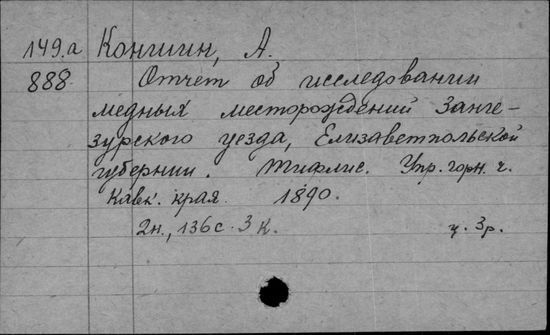 149.a Коншин, А.
888 Отчет об исследовании
медных месторождений Занге-
зурского уезда, Елизаветпольской
губернии. Тифлис. Упр. горн. ч.
Кавк. края. 1890.
2н., 136 с. 3 к. ц. 3р.